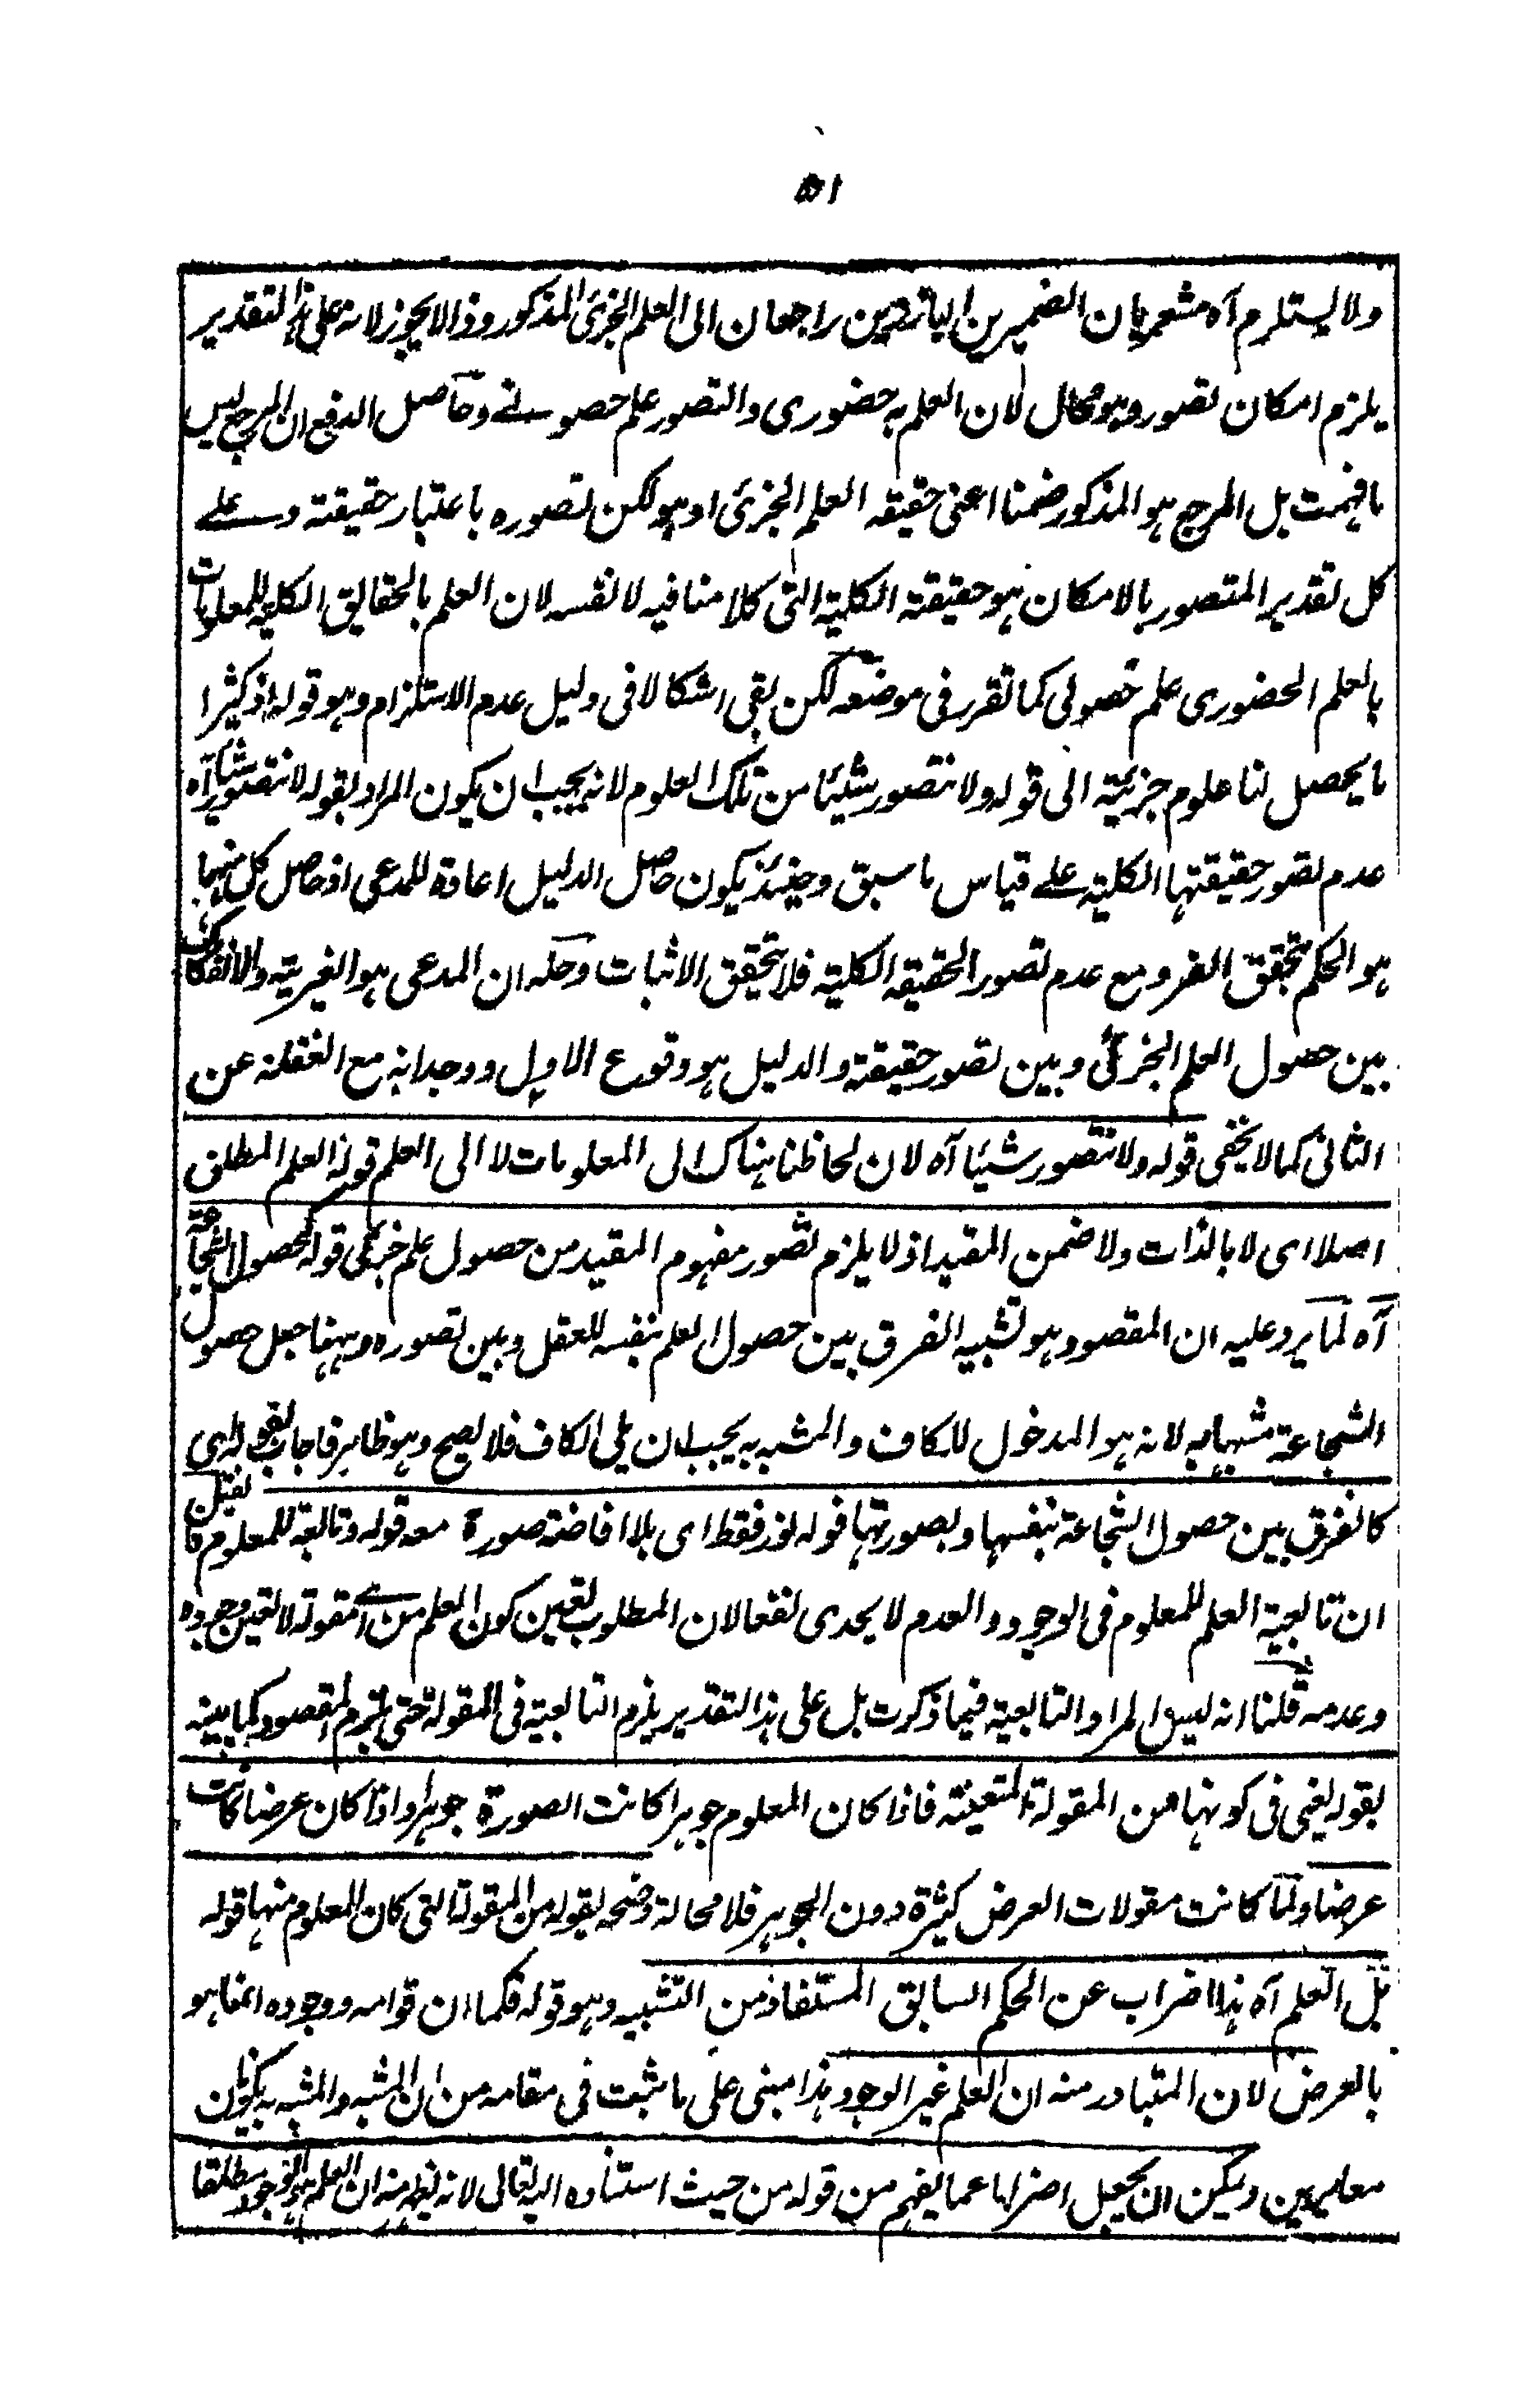 ٥١
ولا يستلزم آه مشعر بان الضميرين البارزين راجعان الى العلم الجزئى المذكور وذا لا يجوز لانه على هذا التقدير
يلزم امكان تصوره وهو محال لان العلم به حضورى والتصور علم حصولے وحاصل الدفع ان المرجع ليس
ما فهمت بل المرجع هو المذكور ضمنا اعنى حقيقه العلم الجزئى او هو لكن تصوره باعتبار حقيقته وسے علے
كل تقدير المتصور بالامكان هو حقيقته الكلية التى كلامنا فيه لا نفسه لان العلم بالحقايق الكلية للمعلومات
بالعلم الحضورى علم حصولى كما تقرر فى موضعه لكن بقى اشكالا فى دليل عدم الاستلزام وهو قوله اذ كثيرا
ما يحصل لنا علوم جزئية الى قوله ولا نتصور شيئا من تلك العلوم لانه يجب ان يكون المراد بقوله لا نتصور شيئا آه
عدم تصور حقيقتها الكلية علے قياس ما سبق وحينئذ يكون حاصل الدليل اعادة للمدعى اذ حاصل كل منهما
هو الحكم بتحقق الفرد مع عدم تصور الحقيقه الكلية فلا يتحقق الاثبات وحله ان المدعى هو الغيرية والانفكاك
بين حصول العلم الجزئى وبين تصور حقيقته والدليل هو وقوع الاول ووجدانه مع الغفلة عن
الثانى كما لا يخفى قوله ولا نتصور شيئا آه لان لحاظنا هناك الى المعلومات لا الى العلم قوله العلم المطلق
اصلا اى لا بالذات ولا ضمن المقيد اذ لا يلزم تصور مفهوم المقيد من حصول علم جزئى قوله كحصول الشجاعة
آه لما يرد عليه ان المقصود هو تشبيه الفرق بين حصول العلم بنفسه للعقل وبين تصوره وههنا جعل حصول
الشجاعة مشبها به لانه هو المدخول للكاف والمشبه به يجب ان يلى الكاف فلا يصح وهو ظاهر فاجاب بقوله اى
كالفرق بين حصول الشجاعة بنفسها وبصورتها قوله نور فقط اى بلا افاضة صورة معه قوله وتابعة للمعلوم فان قيل
ان تابعية العلم للمعلوم فى الوجود والعدم لا يجدى نفعا لان المطلوب تعيين كون العلم من اے مقولة لا تعيين وجوده
وعدمه قلنا انه ليس المراد التابعية فيما ذكرت بل على هذا التقدير يلزم التابعية فى المقولة حتى يلزم المقصود كما بينه
بقوله يعنى فى كونها من المقولة المتعينة فاذا كان المعلوم جوهرا كانت الصورة جوهرا واذا كان عرضا كانت
عرضا ولما كانت مقولات العرض كثيرة دون الجوهر فلا محالة وضحه بقوله من المقولة التى كان المعلوم منها قوله
بل العلم آه هذا اضراب عن الحكم السابق المستفاد من التشبيه وهو قوله فكما ان قوامه ووجوده انما هو
بالعرض لان المتبادر منه ان العلم غير الوجود هذا مبنى على ما ثبت فى مقامه من ان المشبه والمشبه به يكونان
متغايرين ويمكن ان يجعل اضرابا عما يفهم من قوله من حيث استناده اليه تعالى لانه يفهم منه ان العلم هو الوجود مطلقا